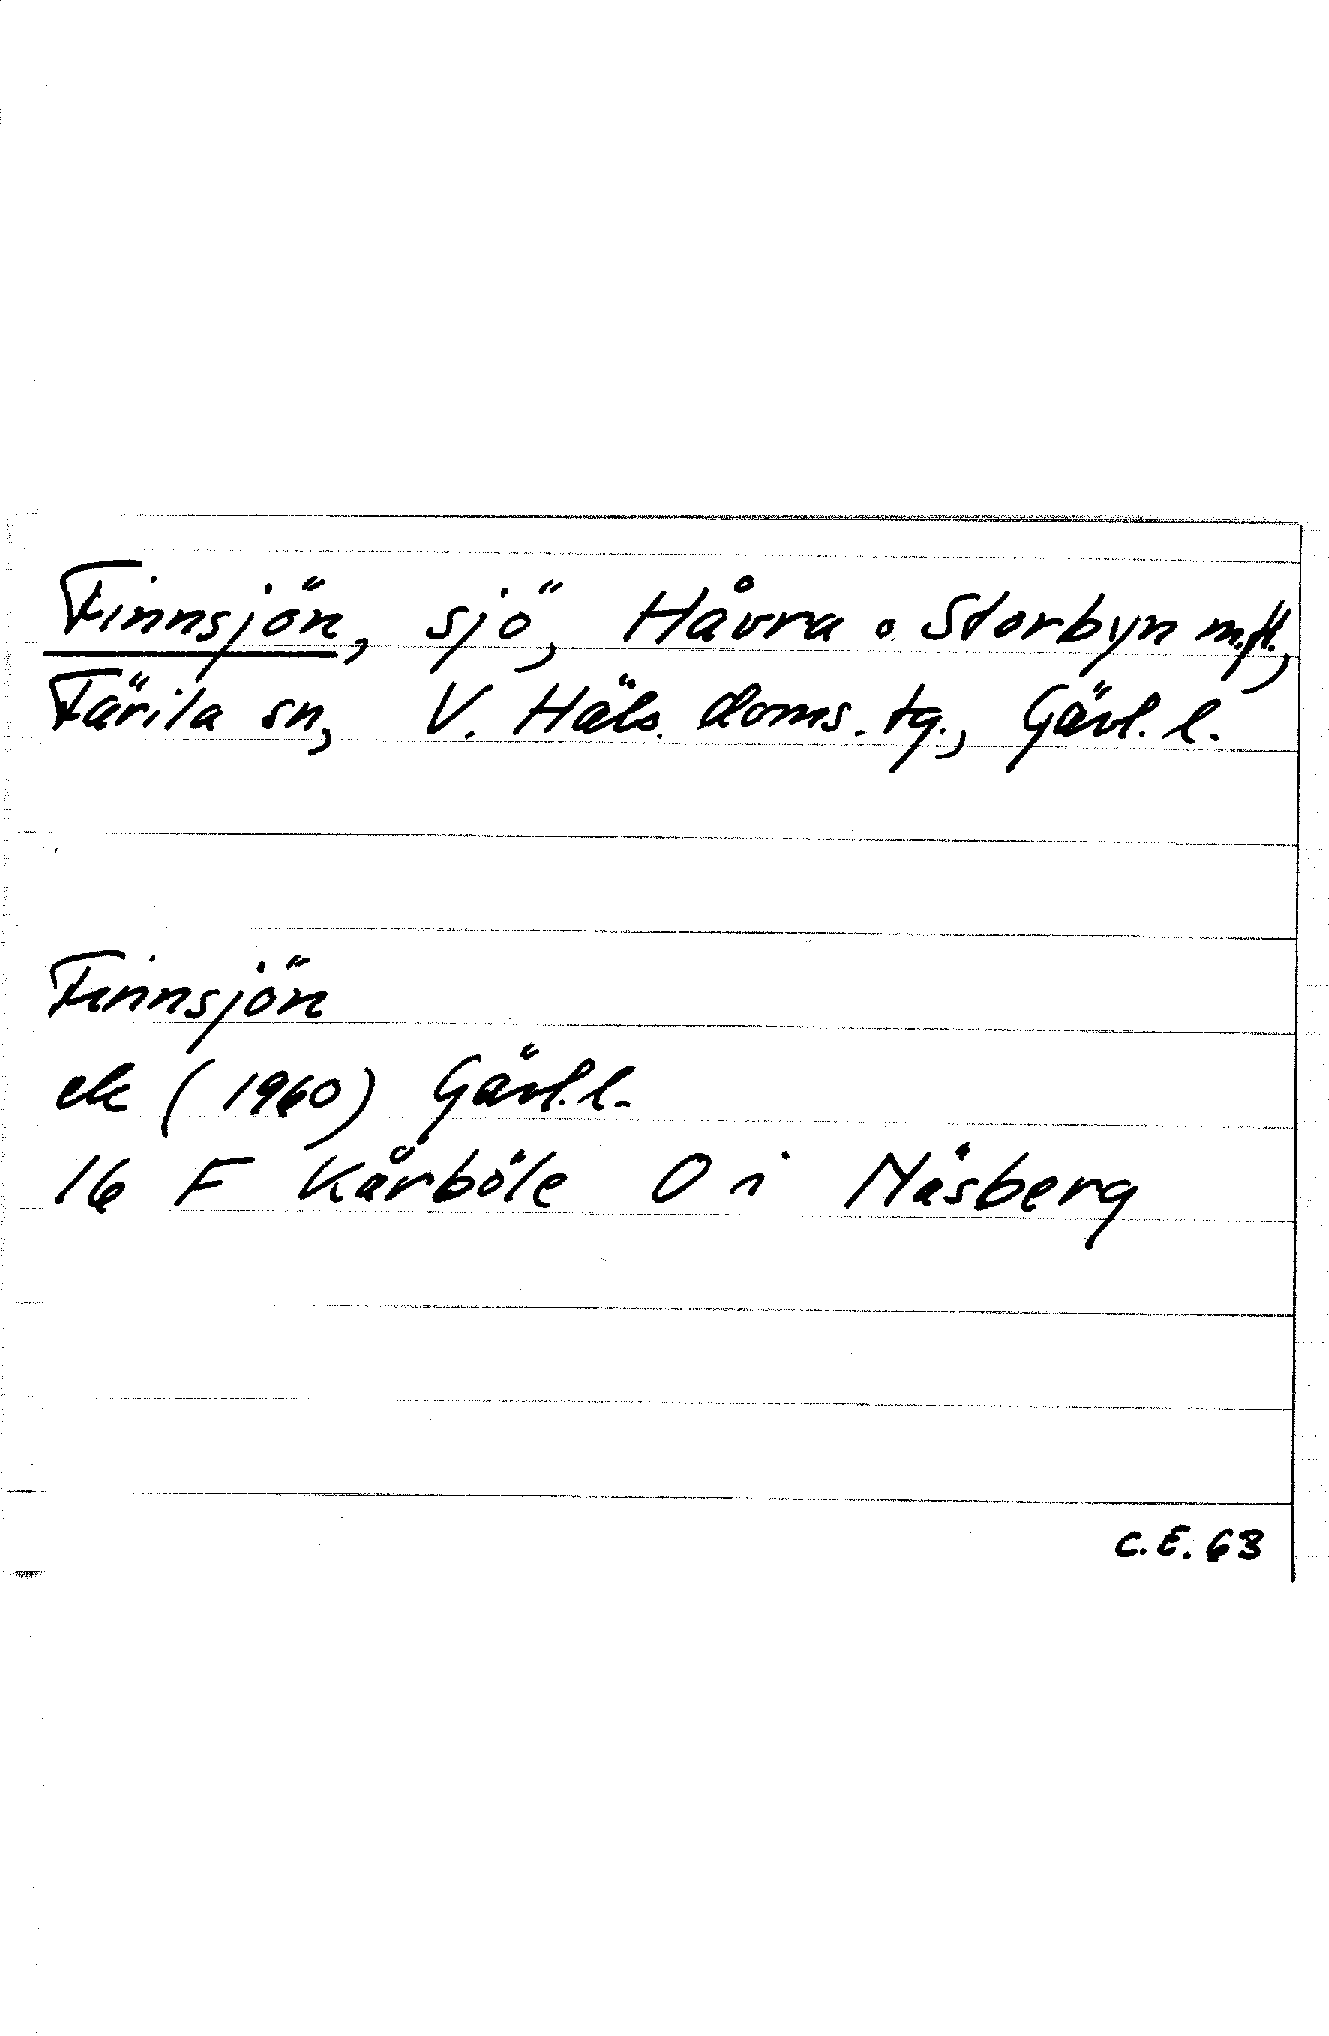 Finnsjön, sjö, Håvra o. Storbyn m.fl.,
Färila sn, V. Häls. doms. tg., Gävl. l.
Finnsjön
ek (1960) Gävl. l.
16 F Kårböle O i Nåsberg
C.E. 63